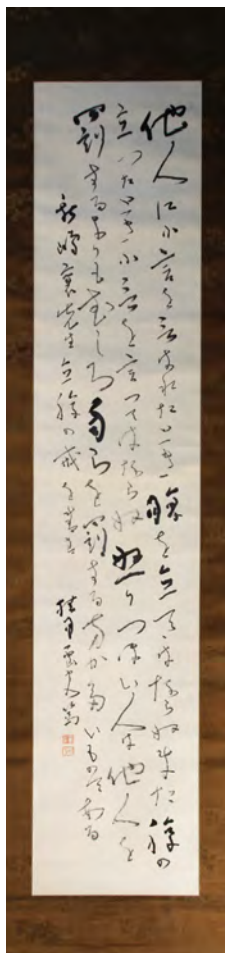 他人に小言を言はれたとき腹を立てはならぬまた腹の
立つたとき小言を言つてはならぬ怒りつぽい人は他人を
罰するよりも寧しろ自らを罰する方が多いものである
新嶋襄先生立腹の戒を書す